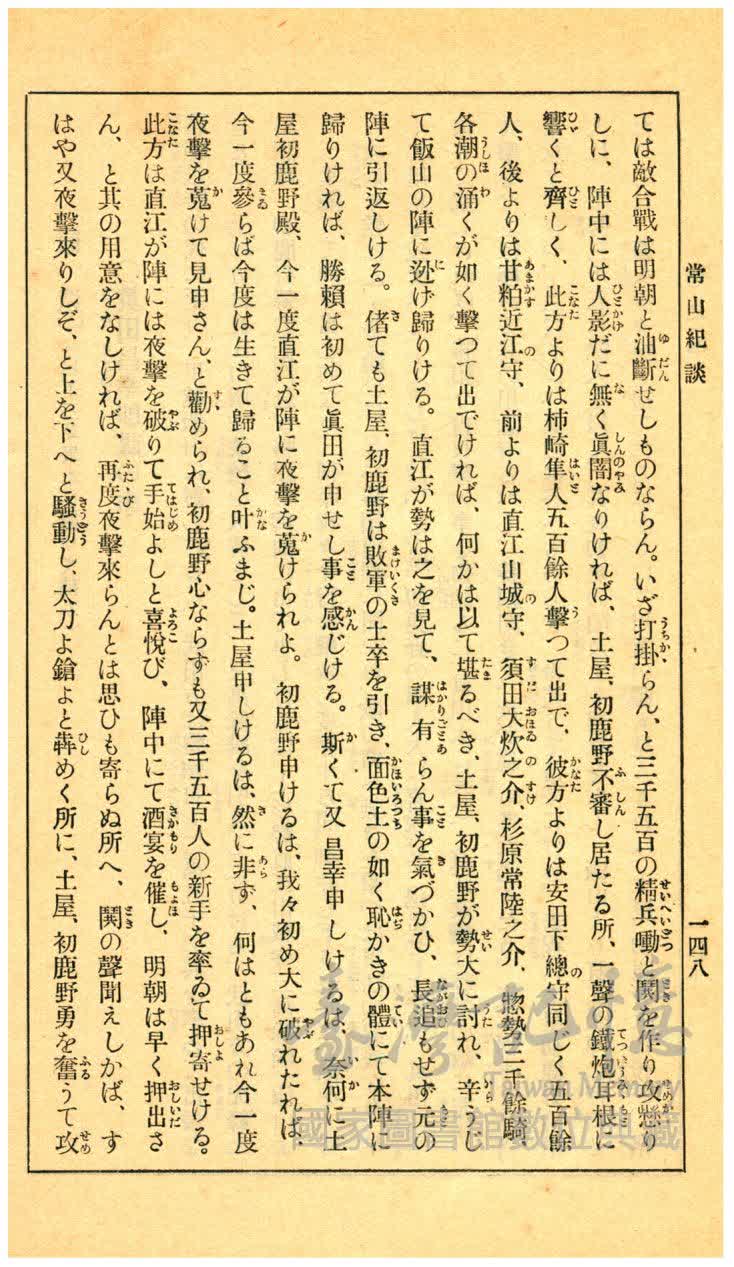 常山紀談
一四八
ては敵合戰は明朝と油斷せしものならん。いざ打掛らん、と三千五百の精兵嘞と鬨を作り攻懸り
しに、陣中には人影だに無く眞闇なりければ、土屋、初鹿野不審し居たる所、一聲の鐵炮耳根に
響くと齊しく、此方よりは柿崎隼人五百餘人擊つて出で、彼方よりは安田下總守同じく五百餘
人、後よりは甘粕近江守、前よりは直江山城守、須田大炊之介、杉原常陸之介、惣勢三千餘騎
各潮の涌くが如く擊つて出でければ、何かは以て堪るべき、土屋、初鹿野が勢大に討れ、辛うじ
て飯山の陣に迯げ歸りける。直江が勢は之を見て、謀有らん事を氣づかひ、長追もせず元の
陣に引返しける。偖ても土屋、初鹿野は敗軍の士卒を引き、面色土の如く恥かきの體にて本陣に
歸りければ、勝賴は初めて眞田が申せし事を感じける。斯くて又昌幸申しけるは、奈何に土
屋初鹿野殿、今一度直江が陣に夜擊を蒐けられよ。初鹿野申けるは、我々初め大に破れたれば、
今一度參らば今度は生きて歸ること叶ふまじ。土屋申しけるは、然に非ず、何はともあれ今一度
夜擊を蒐けて見申さん、と勸められ、初鹿野心ならずも又三千五百人の新手を率ゐて押寄せける。
此方は直江が陣には夜擊を破りて手始よしと喜悅び、陣中にて酒宴を催し、明朝は早く押出さ
ん、と其の用意をなしければ、再度夜擊來らんとは思ひも寄らぬ所へ、鬨の聲聞えしかば、す
はや又夜擊來りしぞ、と上を下へと騷動し、太刀よ鎗よと犇めく所に、土屋、初鹿野勇を奮うて攻
臺灣記憶
Taiwan Memory
國家圖書館數位典藏